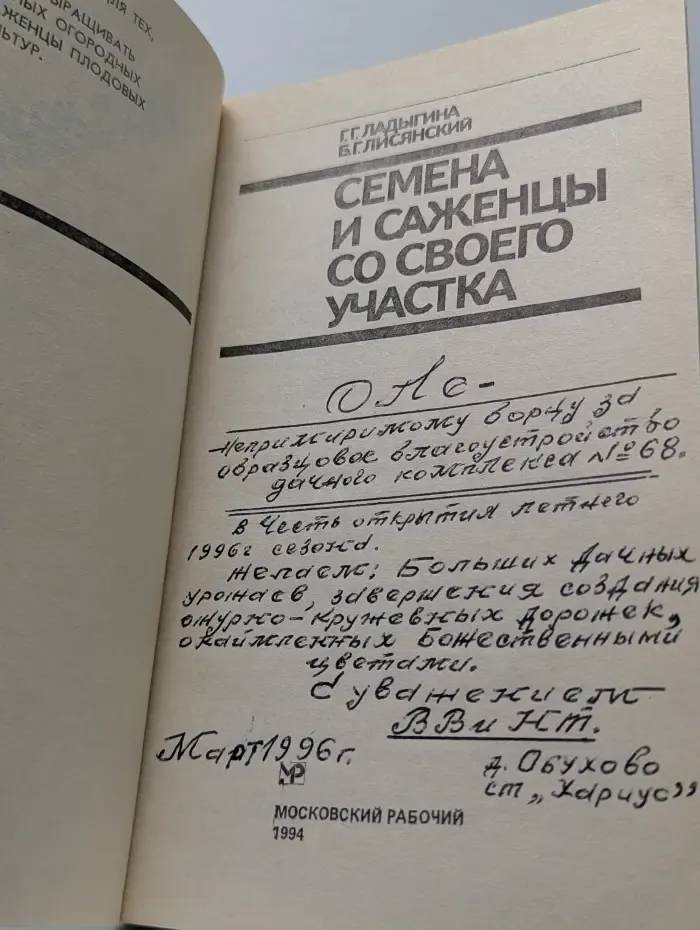 ДЛЯ ТЕХ,
ВЫРАЩИВАТЬ
ОГОРОДНЫХ
САЖЕНЦЫ ПЛОДОВЫХ
КУЛЬТУР.
Г.Г.ЛАДЫГИНА
Б.Г.ЛИСЯНСКИЙ
СЕМЕНА
И САЖЕНЦЫ
СО СВОЕГО
УЧАСТКА
ОНС-
Непримиримому борцу за
образцовое благоустройство
дачного комплекса № 68.
в честь открытия летнего
1996г сезона.
Желаем: Больших дачных
урожаев, завершения создания
ажурно-кружевных дорожек,
окаймленных Божественными
цветами.
С уважением
ВВ и НТ.
Март 1996 г.
д. Обухово
ст „Хариус"
МР
МОСКОВСКИЙ РАБОЧИЙ
1994